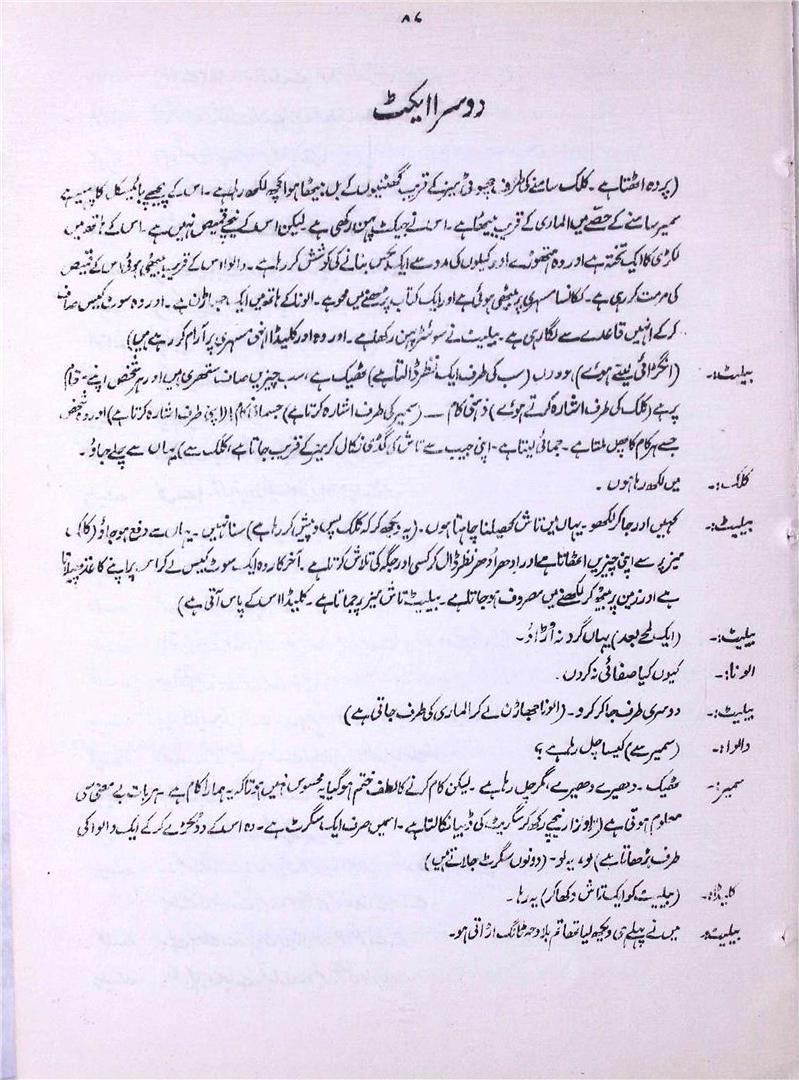 ۸۶
دوسرا ایکٹ
(پردہ اٹھتا ہے۔ کلک سامنے کی طرف چھوٹی میز کے قریب گھٹنیوں کے بل بیٹھا ہوا کچھ لکھ رہا ہے۔ اس کے پیچھے بائیسکل کا پہیہ ہے
سمیر سامنے کے حصے میں الماری کے قریب بیٹھا ہے۔ اس نے جیکٹ پہن رکھی ہے۔ لیکن اس کے نیچے قمیص نہیں ہے۔ اس کے ہاتھ میں
لکڑی کا ایک تختہ ہے اور وہ ہتھوڑے اور کیلوں کی مدد سے ایک بکس بنانے کی کوشش کر رہا ہے۔ دالوا اس کے قریب بیٹھی ہوئی اس کے قمیص
کی مرمت کر رہی ہے۔ لکانسا مسہری پر بیٹھی ہوئی ہے اور ایک کتاب پڑھنے میں محو ہے۔ الونا کے ہاتھ میں ایک جھاڑن ہے۔ اور وہ سوٹ کیس صاف
کر کے انہیں قاعدے سے لگا رہی ہے۔ بیلیٹ نے سوئٹر پہن رکھا ہے۔ اور وہ اور کلیڈا اپنی مسہری پر آرام کر رہے ہیں)
بیلیٹ:۔ (انگڑائی لیتے ہوئے) ہوں (سب کی طرف ایک نظر ڈالتا ہے) ٹھیک ہے، سب چیزیں صاف ستھری ہیں اور ہر شخص اپنے مقام
پر ہے (کلک کی طرف اشارہ کرتے ہوئے) ذہنی کام — (سمیر کی طرف اشارہ کرتا ہے) جسمانی کام! (اپنی طرف اشارہ کرتا ہے) اور وہ شخص
جسے ہر کام کا پھل ملتا ہے۔ جمائی لیتا ہے۔ اپنی جیب سے تاش کی گڈی نکال کر میز کے قریب جاتا ہے (کلک سے) یہاں سے چلے جاؤ۔
کلک:۔ میں لکھ رہا ہوں۔
بیلیٹ:۔ کہیں اور جا کر لکھو۔ یہاں میں تاش کھیلنا چاہتا ہوں۔ (یہ دیکھ کر کہ کلک پس و پیش کر رہا ہے) سنا نہیں۔ یہاں سے دفع ہو جاؤ (کلک
میز پر سے اپنی چیزیں اٹھاتا ہے اور ادھر اُدھر نظر ڈال کر کسی اور جگہ کی تلاش کرتا ہے۔ آخر کار وہ ایک سوٹ کیس لے کر اس پر اپنے کاغذ پھیلاتا
ہے اور زمین پر بیٹھ کر لکھنے میں مصروف ہو جاتا ہے۔ بیلیٹ تاش میز پر جماتا ہے۔ کلیڈا اس کے پاس آتی ہے)
بیلیٹ:۔ (ایک لمحے بعد) یہاں گرد نہ اُڑاؤ۔
الونا:۔ کیوں کیا صفائی نہ کروں۔
بیلیٹ:۔ دوسری طرف جا کر کرو۔ (الونا جھاڑن لے کر الماری کی طرف جاتی ہے)
دالوا:۔ (سمیر سے) کیسا چل رہا ہے؟
سمیر:۔ ٹھیک۔ دھیرے دھیرے، مگر چل رہا ہے۔ لیکن کام کرنے کا لطف ختم ہو گیا یہ محسوس نہیں ہوتا کہ یہ ہمارا کام ہے۔ ہر بات بے معنی سی
معلوم ہوتی ہے (اوزار نیچے رکھ کر سگریٹ کی ڈبیا نکالتا ہے۔ اسمیں صرف ایک سگرٹ ہے۔ وہ اس کے دو ٹکڑے کر کے ایک دالوا کی
طرف بڑھاتا ہے) لو، یہ لو۔ (دونوں سگرٹ جلاتے ہیں)
کلیڈا:۔ (بیلیٹ کو ایک تاش دکھا کر) یہ رہا۔
بیلیٹ:۔ میں نے پہلے ہی دیکھ لیا تھا تم بلا وجہ ٹانگ اڑاتی ہو۔